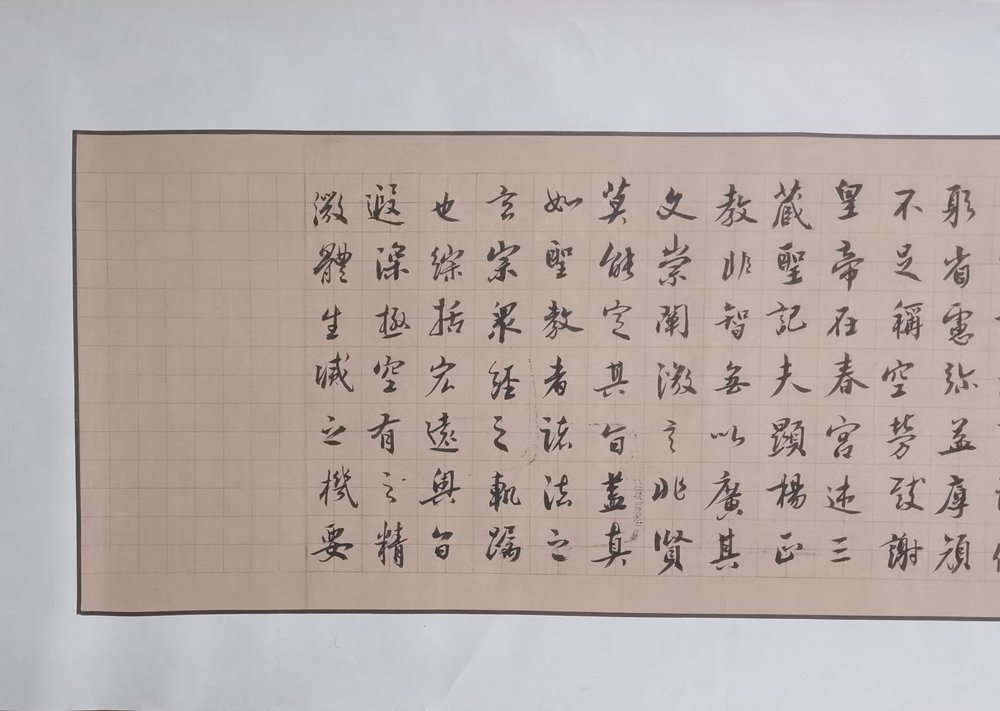 躬省慮弥益厚顔
不足稱空勞致謝
皇帝在春宮述三
藏聖記夫顯揚正
教非智無以廣其
文崇闡微言非賢
莫能定其旨蓋真
如聖教者諸法之
玄宗衆經之軌躅
也綜括宏遠奧旨
遐深極空有之精
微體生滅之機要